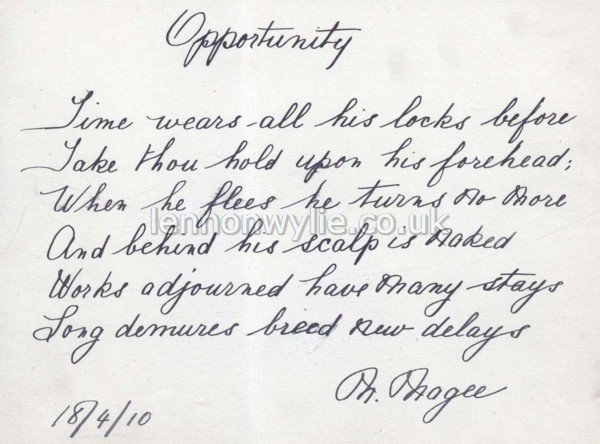 Opportunity
Time wears all his locks before
Take thou hold upon his forehead;
When he flees he turns no more
lennonwylie.co.uk
And behind his scalp is naked
Works adjourned have many stays
Long demures breed new delays
M. Magee
18/4/10